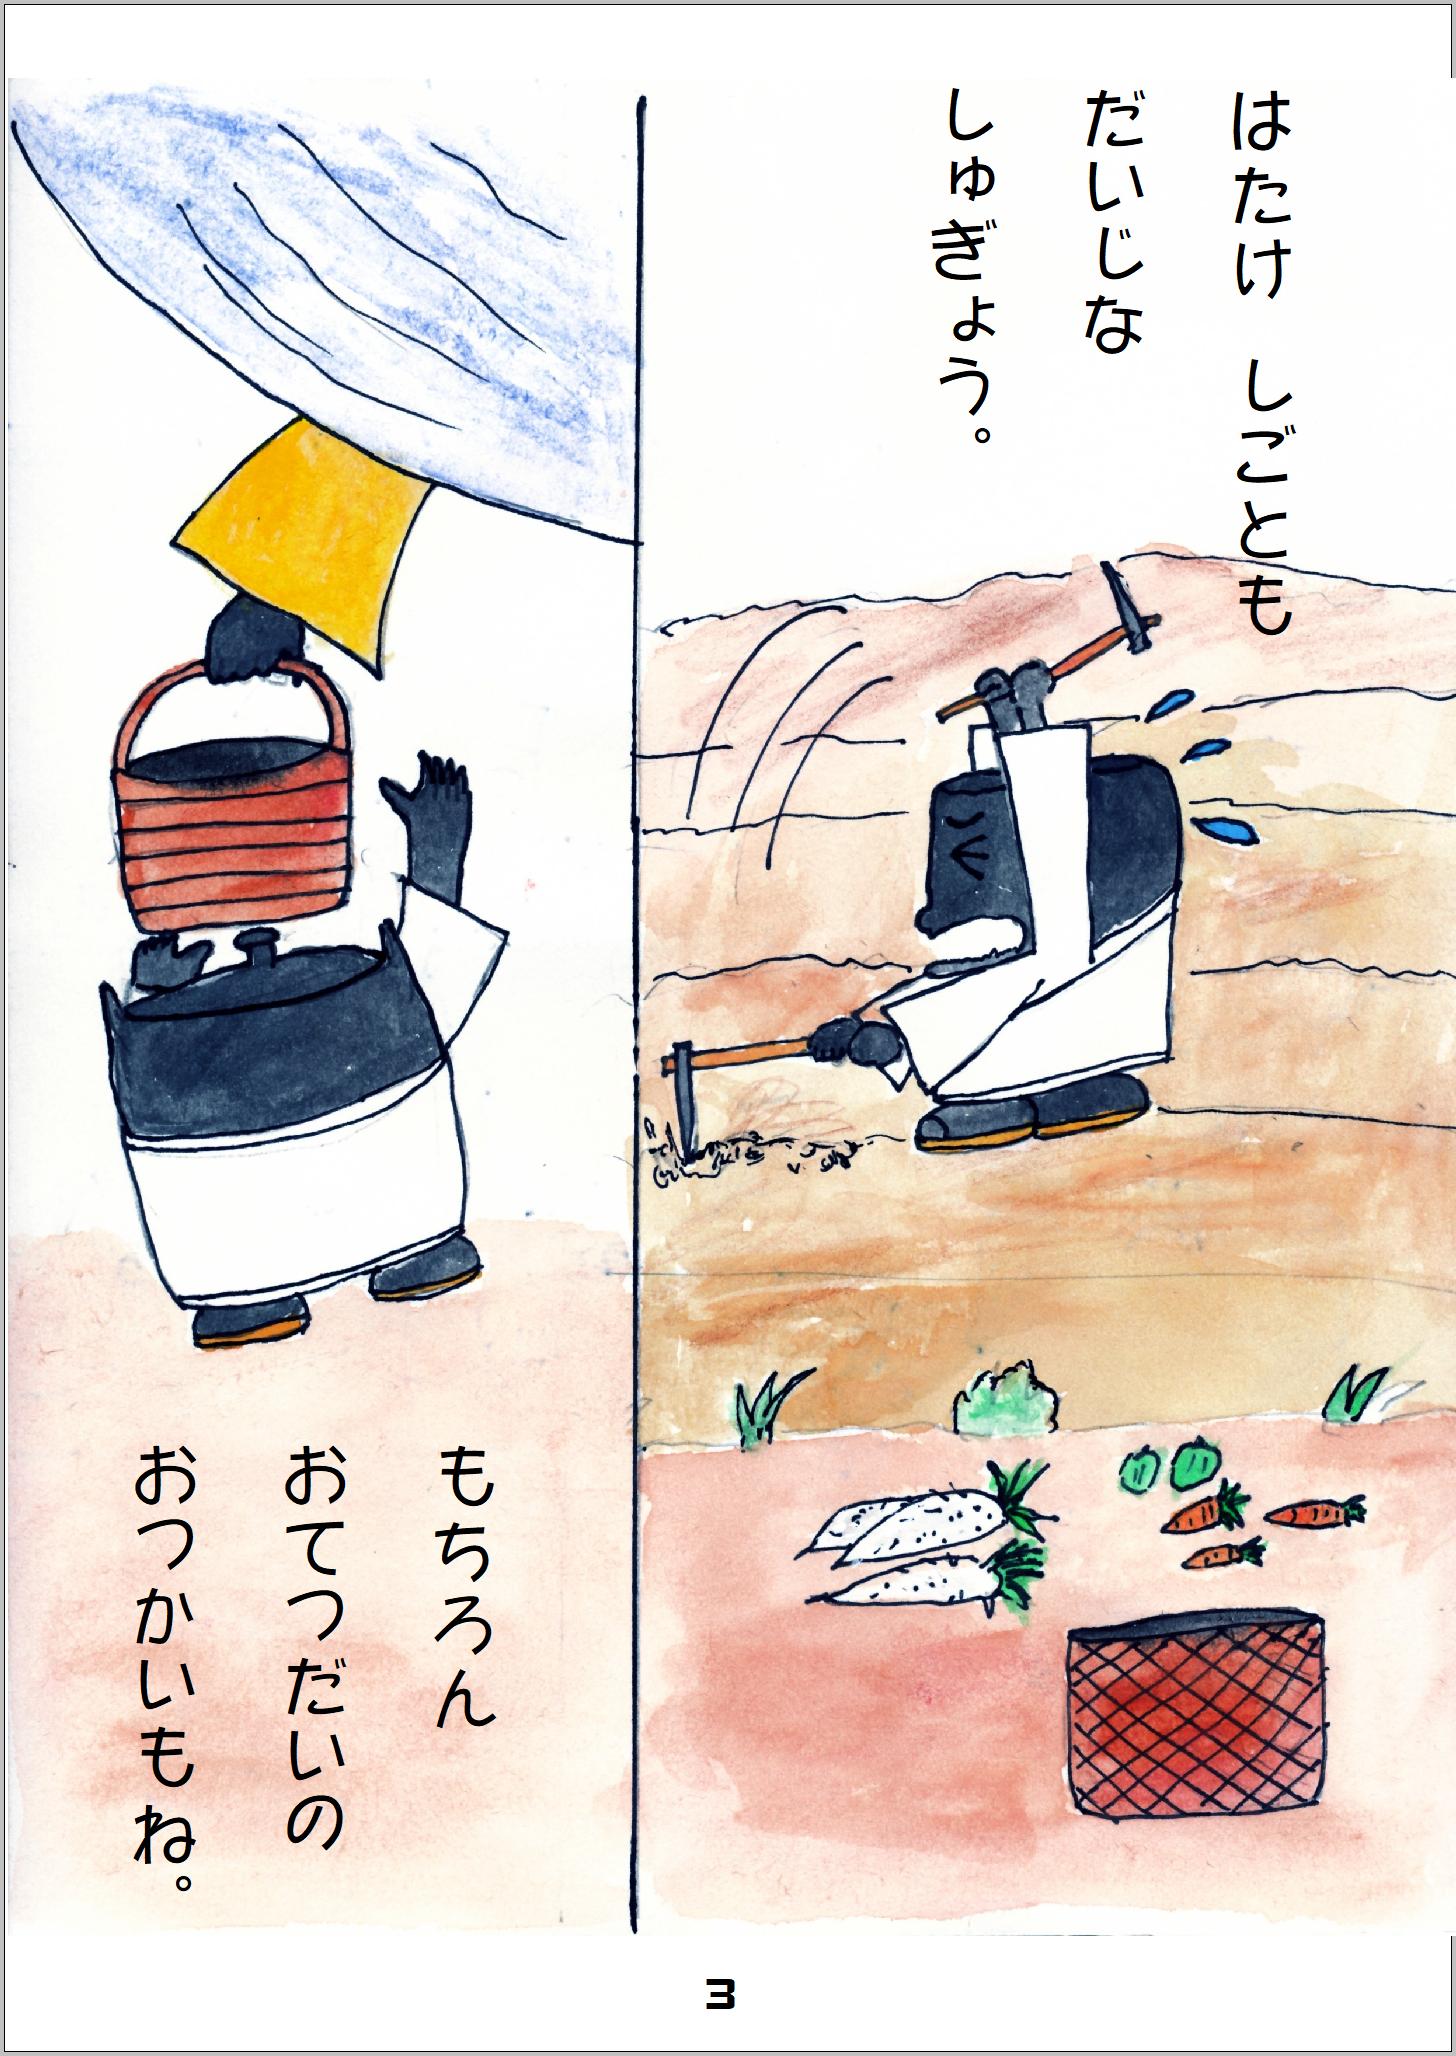 はたけ　しごとも
だいじな
しゅぎょう。
もちろん
おてつだいの
おつかいもね。
3